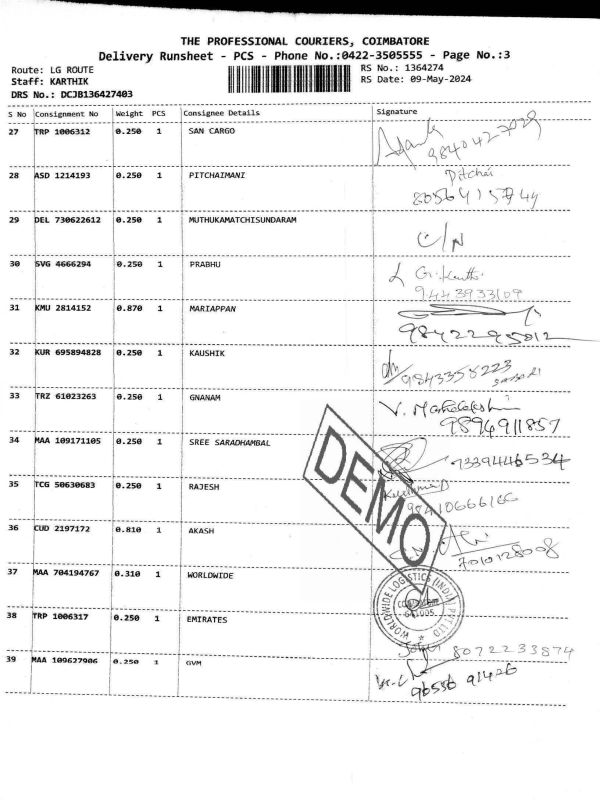 THE PROFESSIONAL COURIERS, COIMBATORE
Delivery Runsheet - PCS - Phone No.:0422-3505555 - Page No.:3
Route: LG ROUTE
RS No.: 1364274
Staff: KARTHIK
RS Date: 09-May-2024
DRS No.: DCJB136427403
S No Consignment No Weight PCS Consignee Details Signature
27 TRP 1006312 0.250 1 SAN CARGO
9840427029
28 ASD 1214193 0.250 1 PITCHAIMANI Pitchai
29 DEL 730622612 0.250 1 MUTHUKAMATCHISUNDARAM
C/N
30 SVG 4666294 0.250 1 PRABHU
9443933109
31 KMU 2814152 0.870 1 MARIAPPAN
9842295012
32 KUR 695894828 0.250 1 KAUSHIK
9843358223
33 TRZ 61023263 0.250 1 GNANAM
V. Mahalakshmi
9894911857
34 MAA 109171105 0.250 1 SREE SARADHAMBAL
7339446534
35 TCG 50630683 0.250 1 RAJESH
9841066616
36 CUD 2197172 0.810 1 AKASH
7010128008
37 MAA 704194767 0.310 1 WORLDWIDE
38 TRP 1006317 0.250 1 EMIRATES
8072233874
39 MAA 109627906 0.250 1 GVM
96556 91426
DEMO
WORLDWIDE LOGISTICS (INDIA) PVT LTD
641005